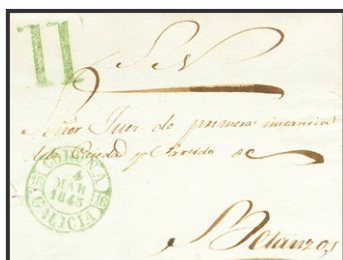 11
S N
Señor Juez de primera instancia
de la Ciudad y Partido de
Betanzos
CORUÑA
4
MAR
1845
GALICIA